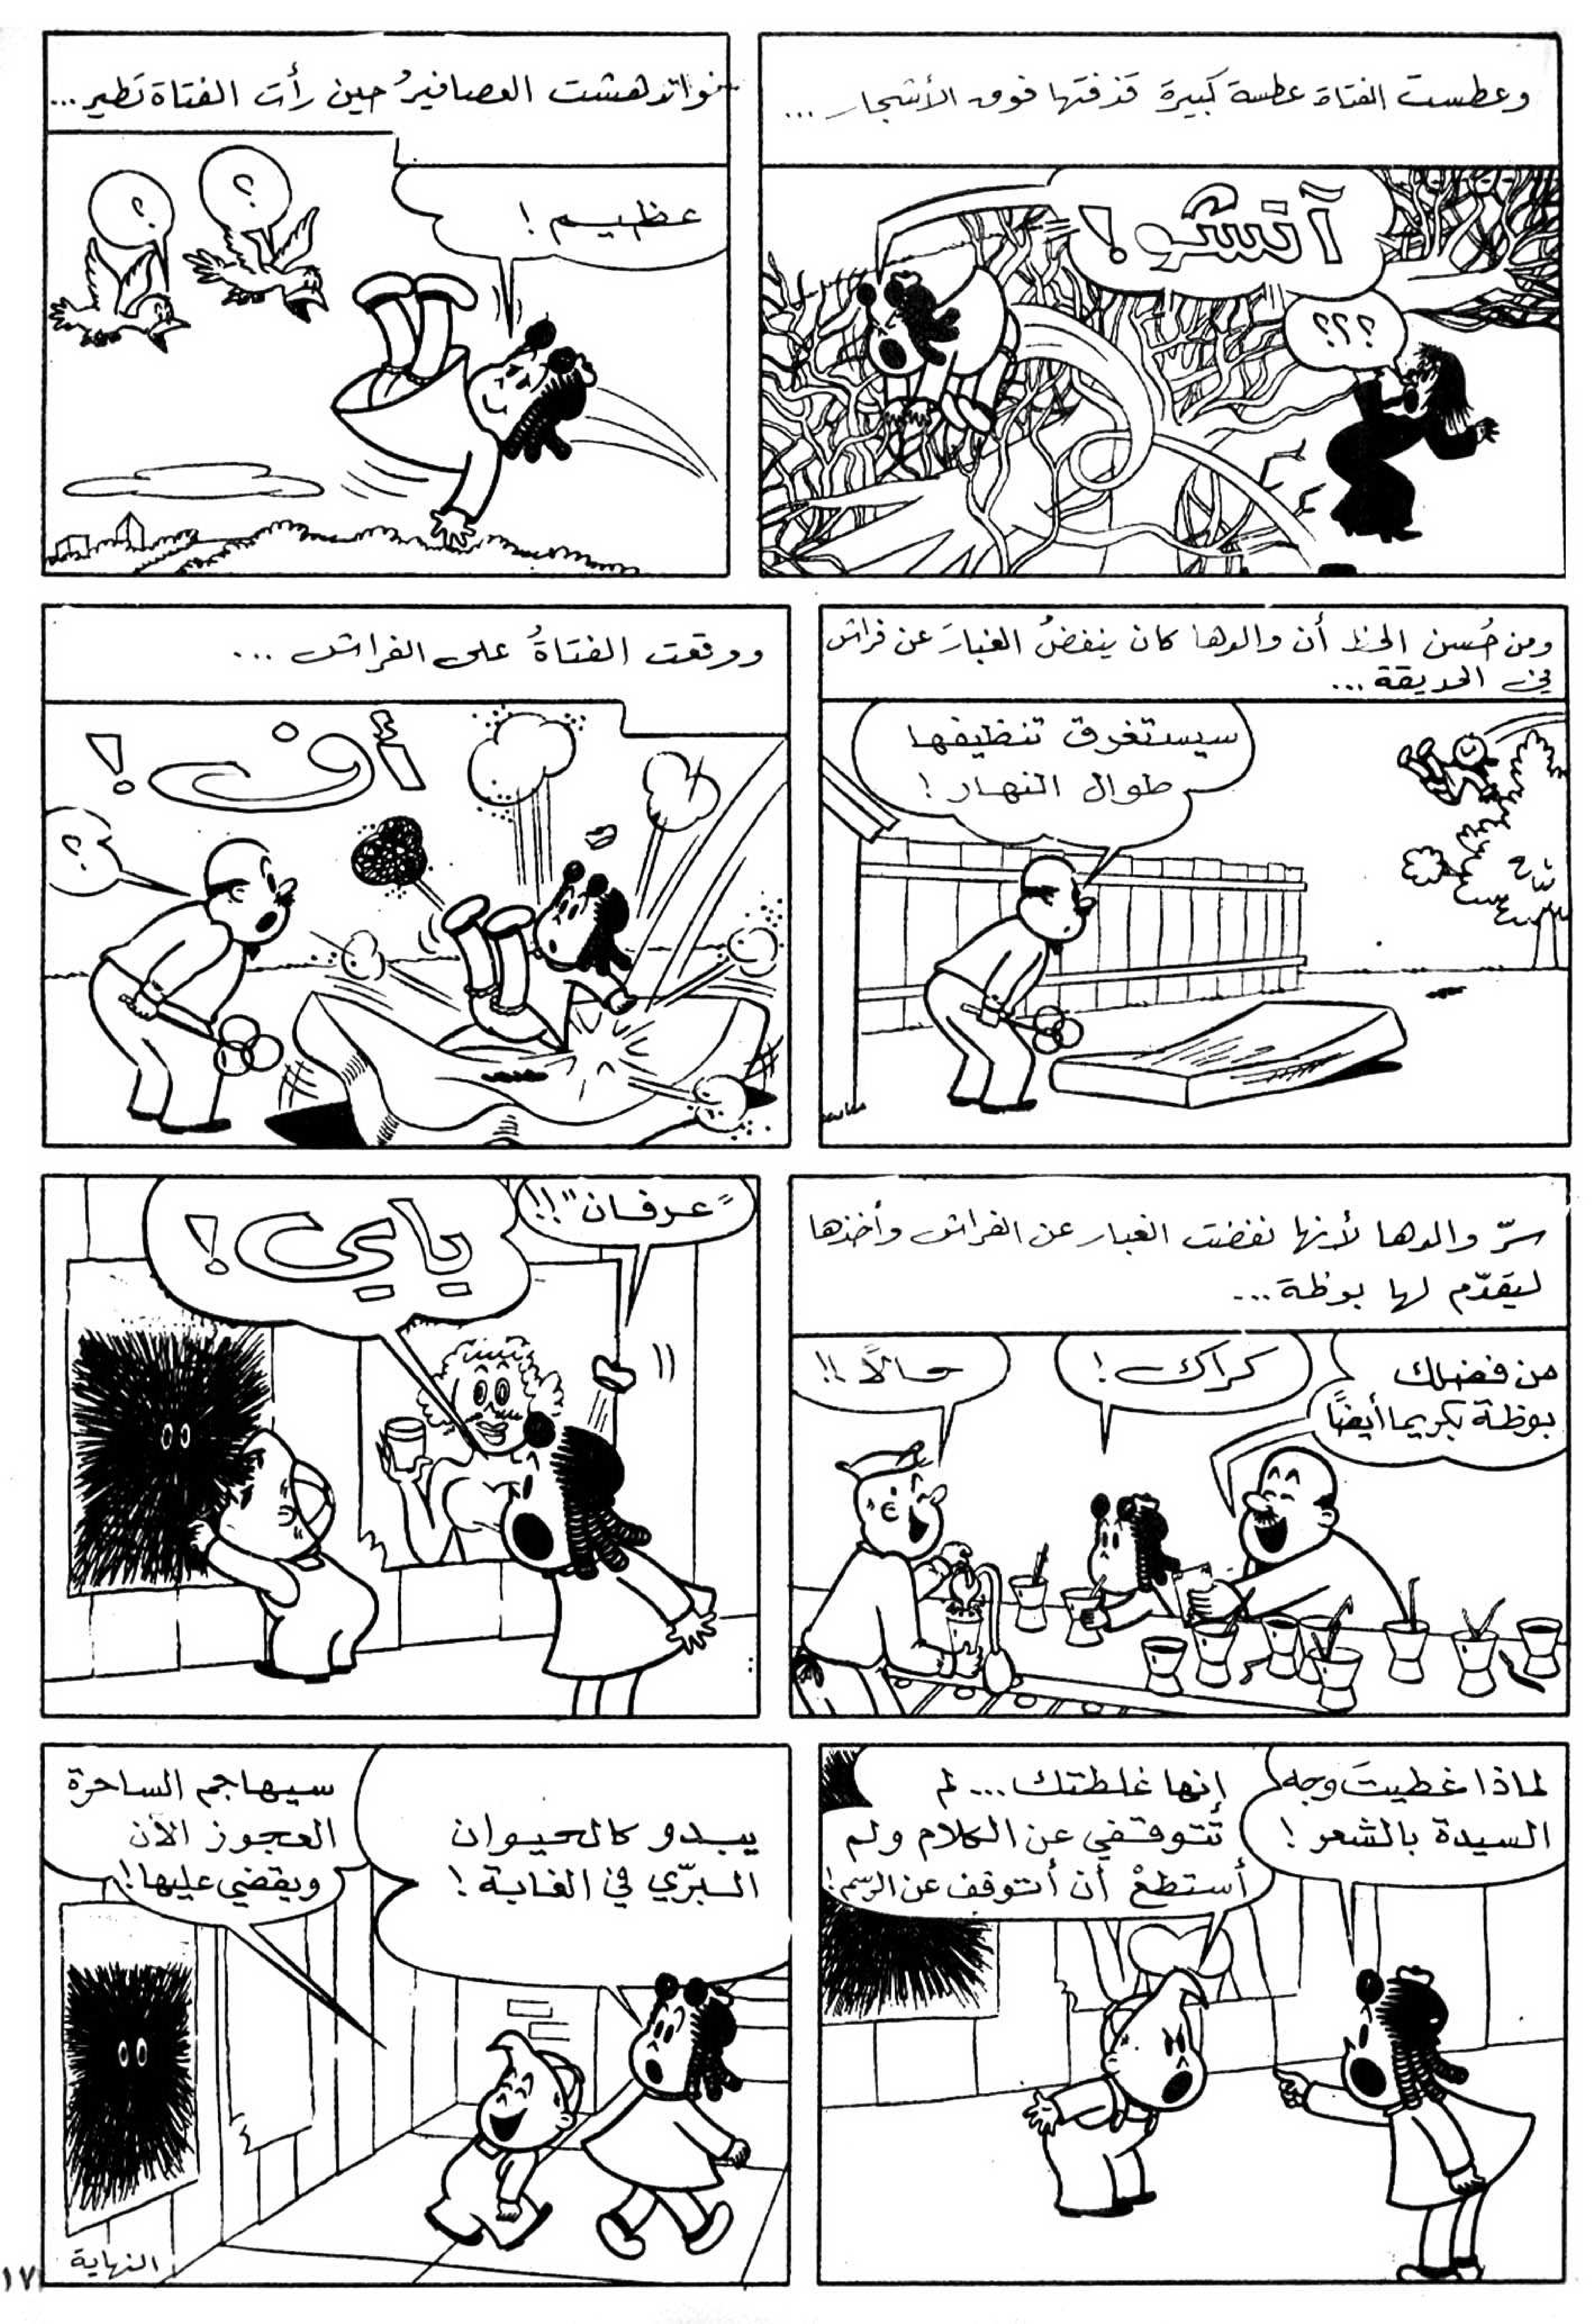 وعطست الفتاة عطسة كبيرة قذفتها فوق الأشجار ...
آتشو!
؟؟؟
حين رأت الفتاة تطير ...
العصافيرُ
عظيم!
؟
؟
ومن حُسن الحظ أن والدها كان ينفضُ الغبارَ عن فراش
في الحديقة ...
سيستغرق تنظيفها
طوال النهار!
ووقعت الفتاةُ على الفراش ...
أف!
؟
سرّ والدها لأنها نفضت الغبار عن الفراش وأخذها
ليقدّم لها بوظة ...
من فضلك
بوظة بكريما أيضًا
كراك!
حالًا!!
"عرفان"!!
ياي!
لماذا غطيتَ وجه
السيدة بالشعر!
إنها غلطتك ... لم
تتوقفي عن الكلام ولم
أستطعْ أن أتوقف عن الرسم!
يبدو كالحيوان
البرّي في الغابة!
سيهاجم الساحرة
العجوز الآن
ويقضي عليها!
النهاية
١٧